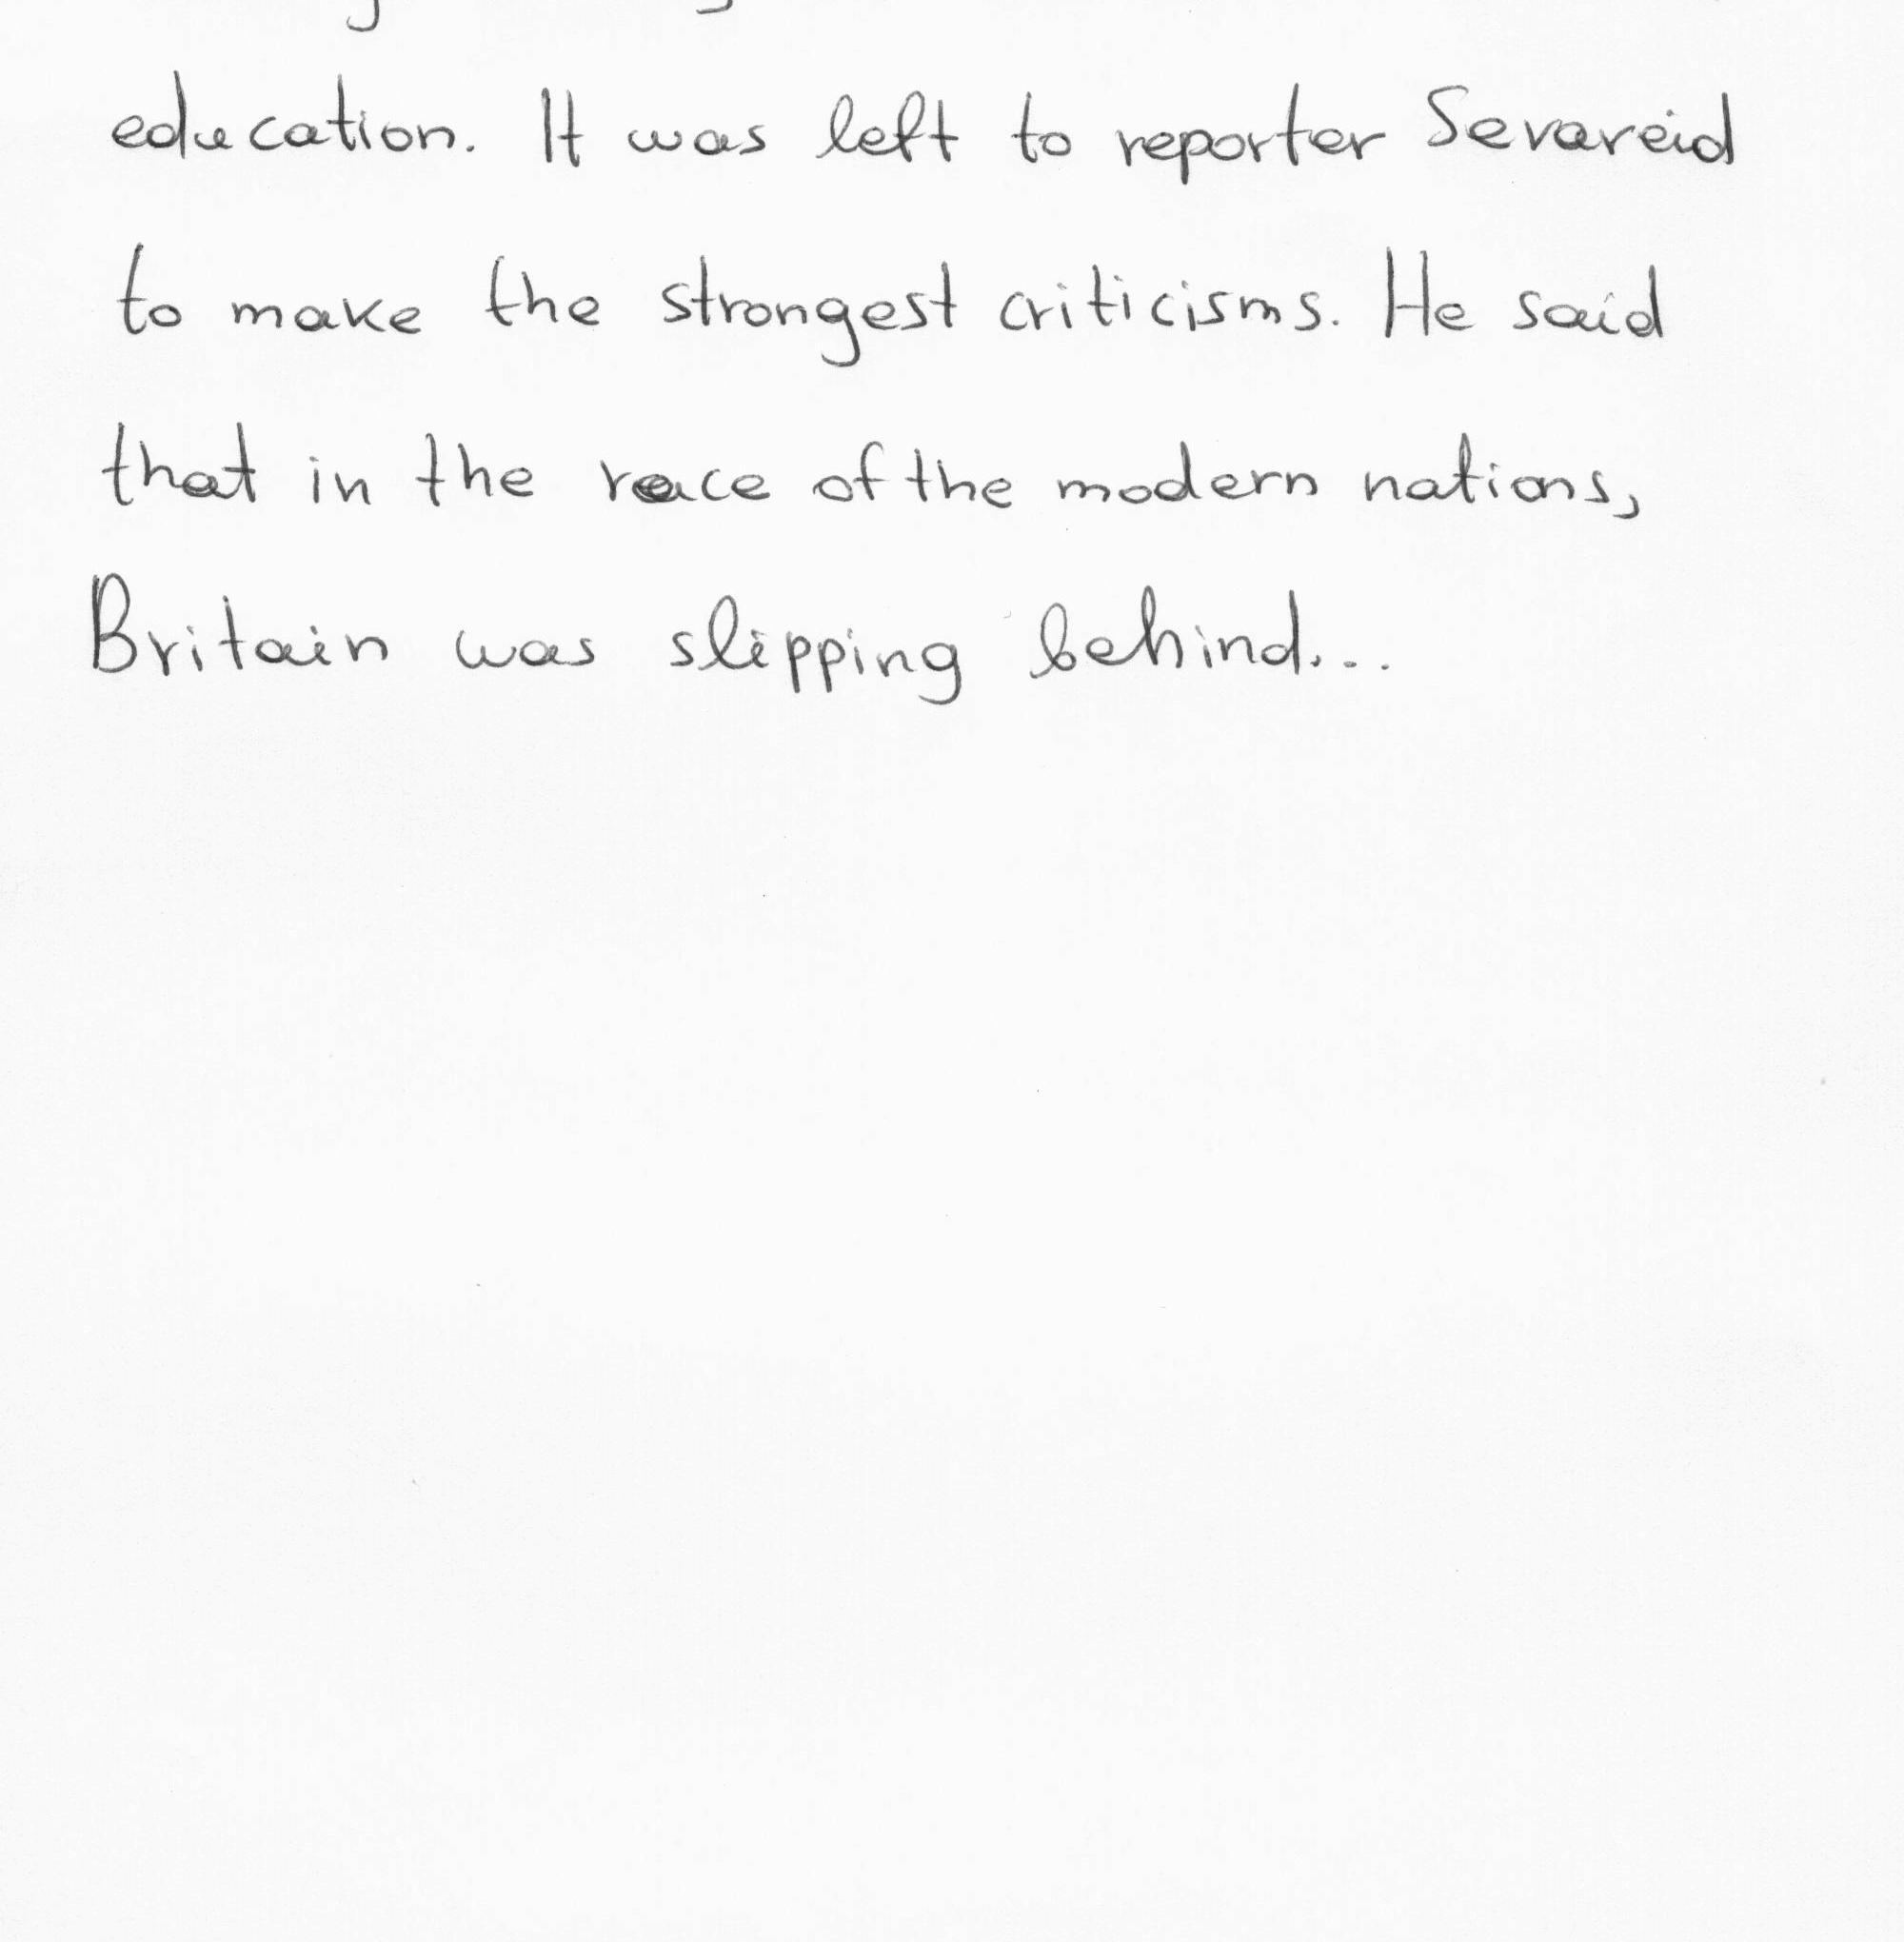 education. It was left to reporter Sevareid
to make the strongest criticisms. He said
that in the race of the modern nations,
Britain was slipping behind...